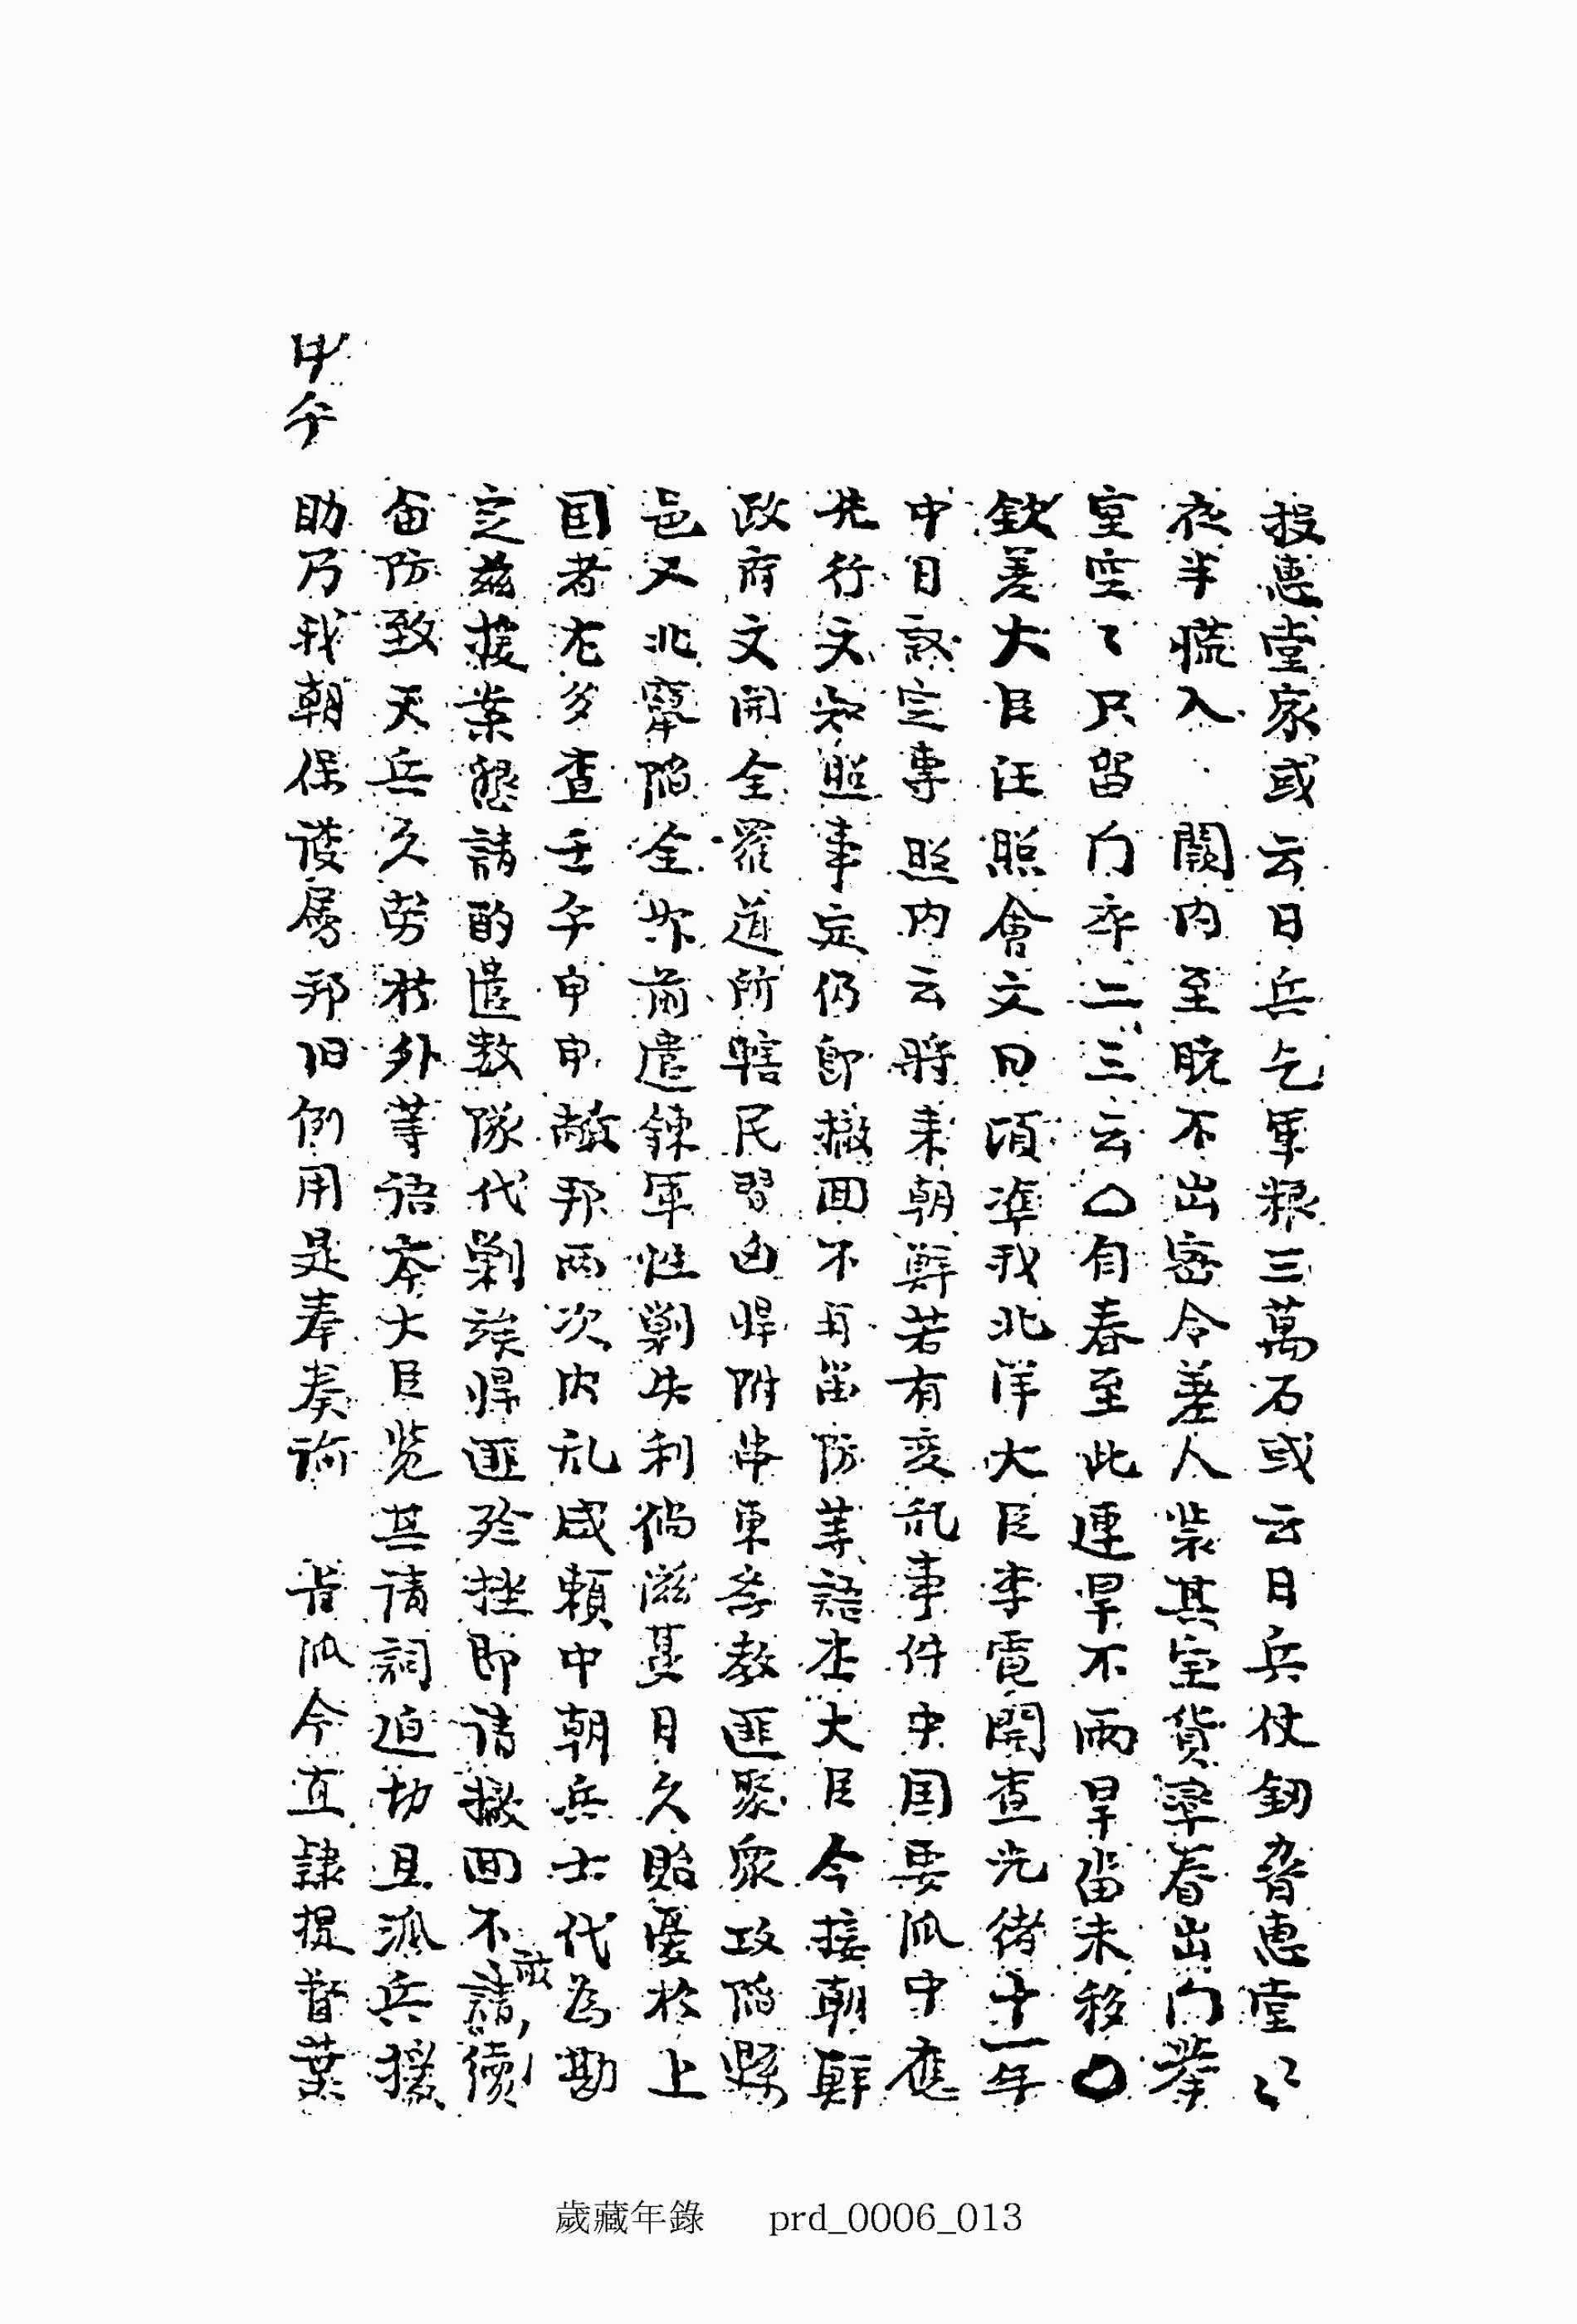 投惠堂家或云日兵乞軍粮三萬石或云日兵仗釼脅惠堂〻
夜半慌入 闕內至晓不出密令差人装其宝貨牽眷出门挚
室空〻只留门卒二三云○自春至此連旱不雨旱畓未移○
欽差大臣汪照會文曰頃準我北洋大臣李電開查光緒十一年
中日議定專照內云將来朝鮮若有变乱事件中国要派中應
先行文知照事定仍即撤回不再留防等語本大臣今接朝鮮
政府文開全羅道所轄民習凶悍附串東孝教匪聚眾攻陷縣
邑又北竄陷全州前遣鍊軍徃剿失利倘滋蔓日久貽憂於上
国者尤多查壬午甲申敝邦两次內乱咸賴中朝兵士代為勘
定茲援案懇請酌遣数隊代剿俟悍匪殄挫即請撤回不敢請續
留防致天兵久劳於外等語本大臣览其请詞迫切且派兵援
甲午
助乃我朝保護属邦旧例用是奉奏諭 旨派令直隸提督葉
歲藏年錄 prd_0006_013